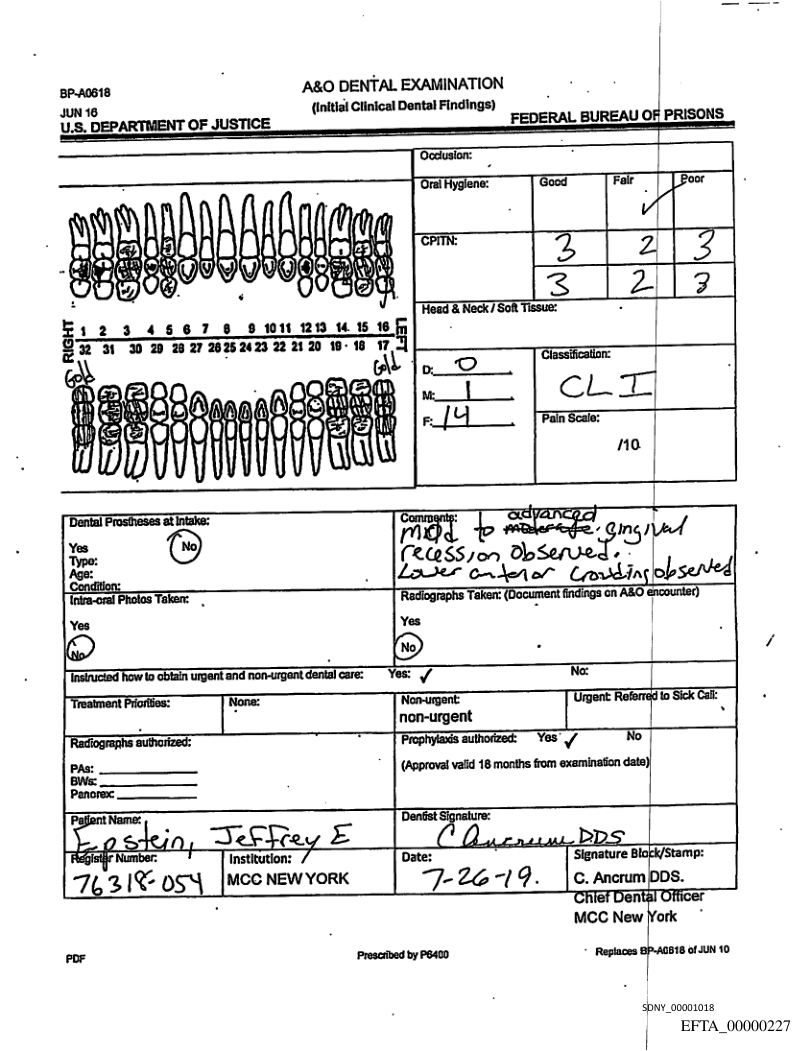 BP-A0618
A&O DENTAL EXAMINATION
JUN 16
(Initial Clinical Dental Findings)
U.S. DEPARTMENT OF JUSTICE
FEDERAL BUREAU OF PRISONS
Occlusion:
Oral Hygiene:
Good
Fair ✓
Poor
CPITN:
3 2 3
3 2 3
Head & Neck / Soft Tissue:
RIGHT
1 2 3 4 5 6 7 8 9 10 11 12 13 14 15 16
32 31 30 29 28 27 26 25 24 23 22 21 20 19 18 17
LEFT
Gold
Gold
D: 0
M: 1
F: 14
Classification:
CL I
Pain Scale:
/10
Dental Prostheses at Intake:
Yes
No
Type:
Age:
Condition:
Comments:
mild to moderate advanced gingival
recession observed.
Lower anterior crowding observed
Intra-oral Photos Taken:
Yes
No
Radiographs Taken: (Document findings on A&O encounter)
Yes
No
Instructed how to obtain urgent and non-urgent dental care:
Yes: ✓
No:
Treatment Priorities:
None:
Non-urgent:
non-urgent
Urgent: Referred to Sick Call:
Radiographs authorized:
PAs:
BWs:
Panorex:
Prophylaxis authorized: Yes ✓ No
(Approval valid 18 months from examination date)
Patient Name:
Epstein, Jeffrey E
Dentist Signature:
C Ancrum DDS
Register Number:
76318-054
Institution:
MCC NEW YORK
Date:
7-26-19.
Signature Block/Stamp:
C. Ancrum DDS.
Chief Dental Officer
MCC New York
PDF
Prescribed by P6400
Replaces BP-A0618 of JUN 10
SDNY_00001018
EFTA_00000227